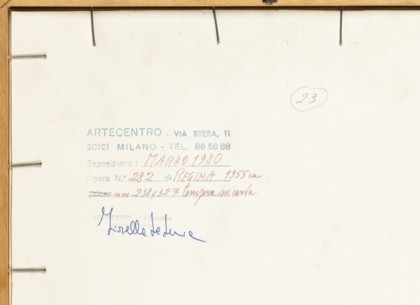 23
ARTECENTRO - VIA BRERA, 11
20121 MILANO - TEL. 86 58 88
Esposizione: MARZO 1980
Opera N.º 282 di REGINA 1955 ca
mm 238x327 tempera su carta